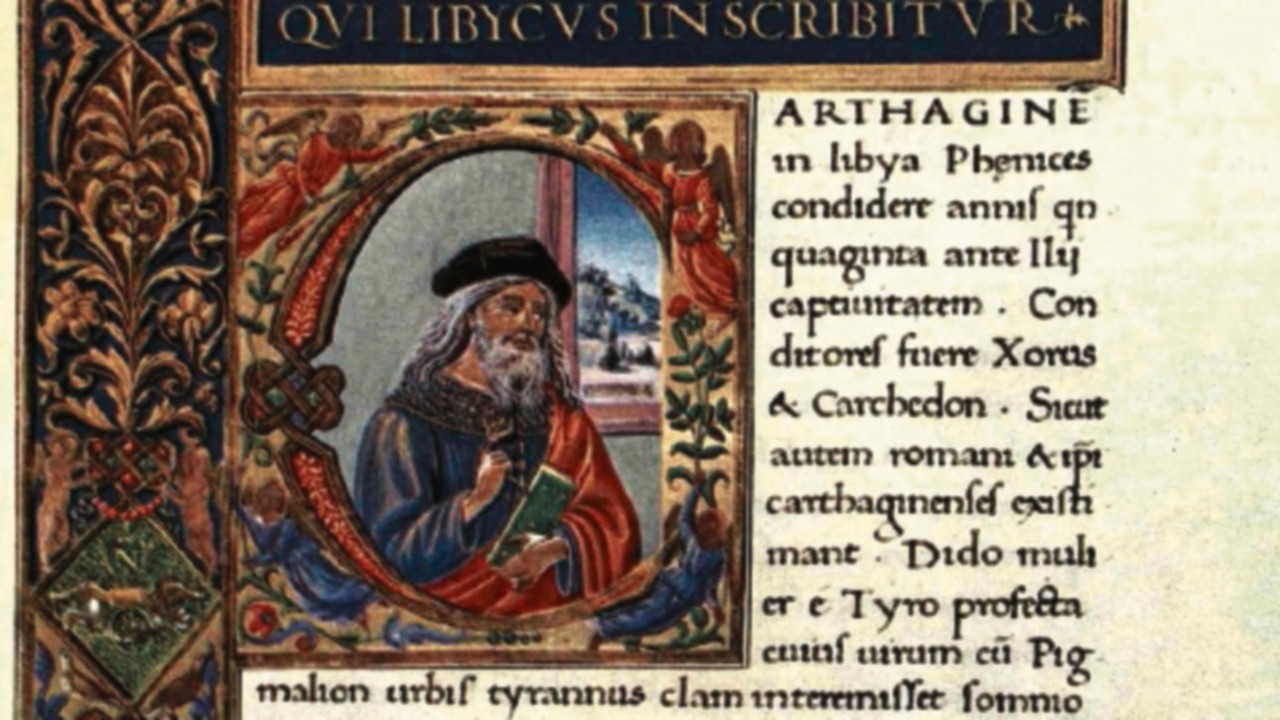 QVI LIBYCVS INSCRIBITVR
CARTHAGINĒ
in libya Phęnices
condidere annis qn
quaginta ante Ilij
captiuitatem . Con
ditores fuere Xorus
& Carchedon . Sicut
autem romani & ip̄i
carthaginenses existi
mant . Dido muli
er e Tyro profecta
cuius uirum cū Pig
malion urbis tyrannus clam interemisset somnio